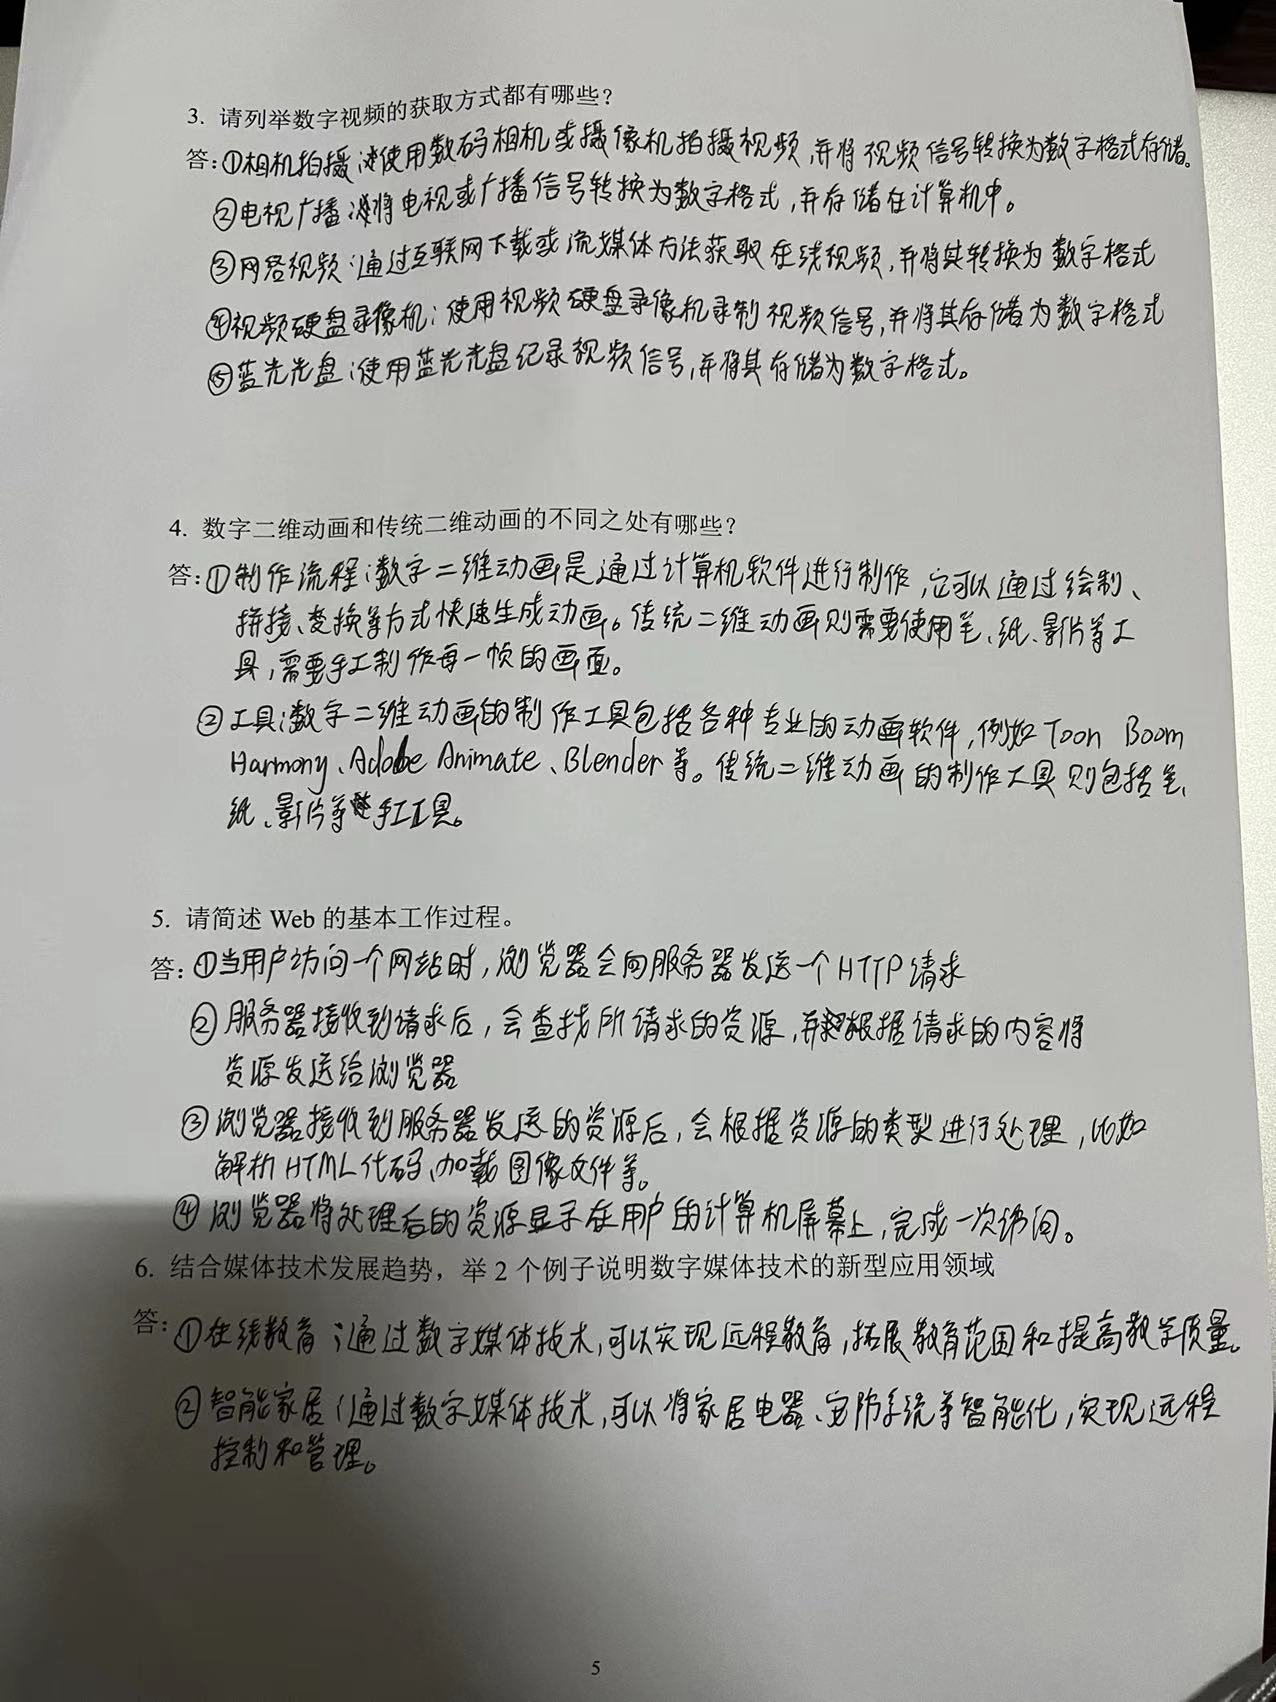 3. 请列举数字视频的获取方式都有哪些？
答：①相机拍摄：使用数码相机或摄像机拍摄视频，并将视频信号转换为数字格式存储。
②电视广播：将电视或广播信号转换为数字格式，并存储在计算机中。
③网络视频：通过互联网下载或流媒体方法获取在线视频，并将其转换为数字格式
④视频硬盘录像机：使用视频硬盘录像机录制视频信号，并将其存储为数字格式
⑤蓝光光盘：使用蓝光光盘纪录视频信号，并将其存储为数字格式。
4. 数字二维动画和传统二维动画的不同之处有哪些？
答：①制作流程：数字二维动画是通过计算机软件进行制作，它可以通过绘制、
拼接、变换等方式快速生成动画。传统二维动画则需要使用笔、纸、影片等工
具，需要手工制作每一帧的画面。
②工具：数字二维动画的制作工具包括各种专业的动画软件，例如Toon Boom
Harmony、Adobe Animate、Blender等。传统二维动画的制作工具则包括笔、
纸、影片等手工工具。
5. 请简述 Web 的基本工作过程。
答：①当用户访问一个网站时，浏览器会向服务器发送一个HTTP请求
②服务器接收到请求后，会查找所请求的资源，并根据请求的内容将
资源发送给浏览器
③浏览器接收到服务器发送的资源后，会根据资源的类型进行处理，比如
解析HTML代码、加载图像文件等。
④浏览器将处理后的资源显示在用户的计算机屏幕上，完成一次访问。
6. 结合媒体技术发展趋势，举 2 个例子说明数字媒体技术的新型应用领域
答：①在线教育：通过数字媒体技术，可以实现远程教育，拓展教育范围和提高教学质量。
②智能家居：通过数字媒体技术，可以将家居电器、安防系统等智能化，实现远程
控制和管理。
5